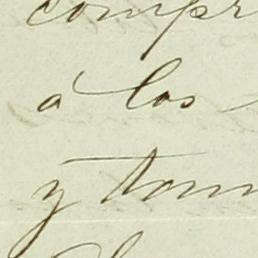 compr
á los
y tom